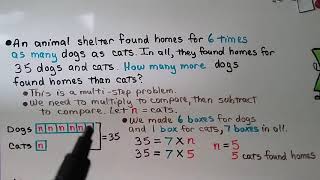 • An animal shelter found homes for 6 times
as many dogs as cats. In all, they found homes for
35 dogs and cats. How many more dogs
found homes than cats?
• This is a multi-step problem.
• We need to multiply to compare, then subtract
to compare. Let n = cats.
Dogs n n n n n n
Cats n
= 35
• We made 6 boxes for dogs
and 1 box for cats, 7 boxes in all.
35 = 7 × n n = 5
35 = 7 × 5 5 cats found homes